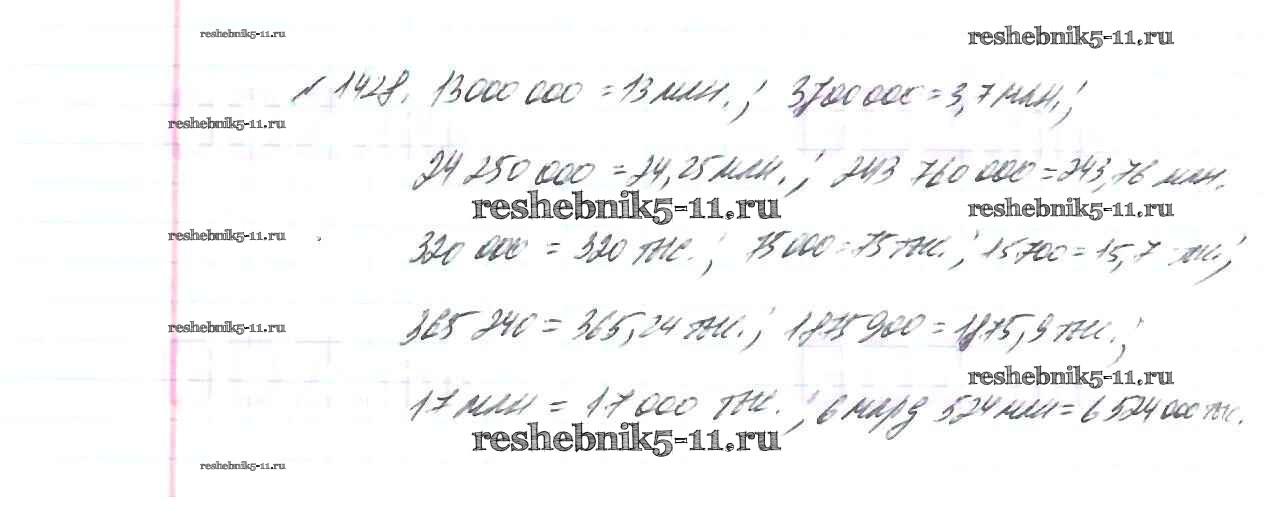 reshebnik5-11.ru
reshebnik5-11.ru
№ 1428. 13 000 000 = 13 млн.; 3700 000 = 3,7 млн.;
reshebnik5-11.ru
24 250 000 = 24,25 млн.; 243 760 000 = 243,76 млн.
reshebnik5-11.ru
reshebnik5-11.ru
reshebnik5-11.ru
320 000 = 320 тыс.; 75 000 = 75 тыс.; 15 700 = 15,7 тыс.;
reshebnik5-11.ru
365 240 = 365,24 тыс.; 1875 900 = 1875,9 тыс.;
reshebnik5-11.ru
17 млн = 17 000 тыс.; 6 млрд 524 млн = 6 524 000 тыс.
reshebnik5-11.ru
reshebnik5-11.ru